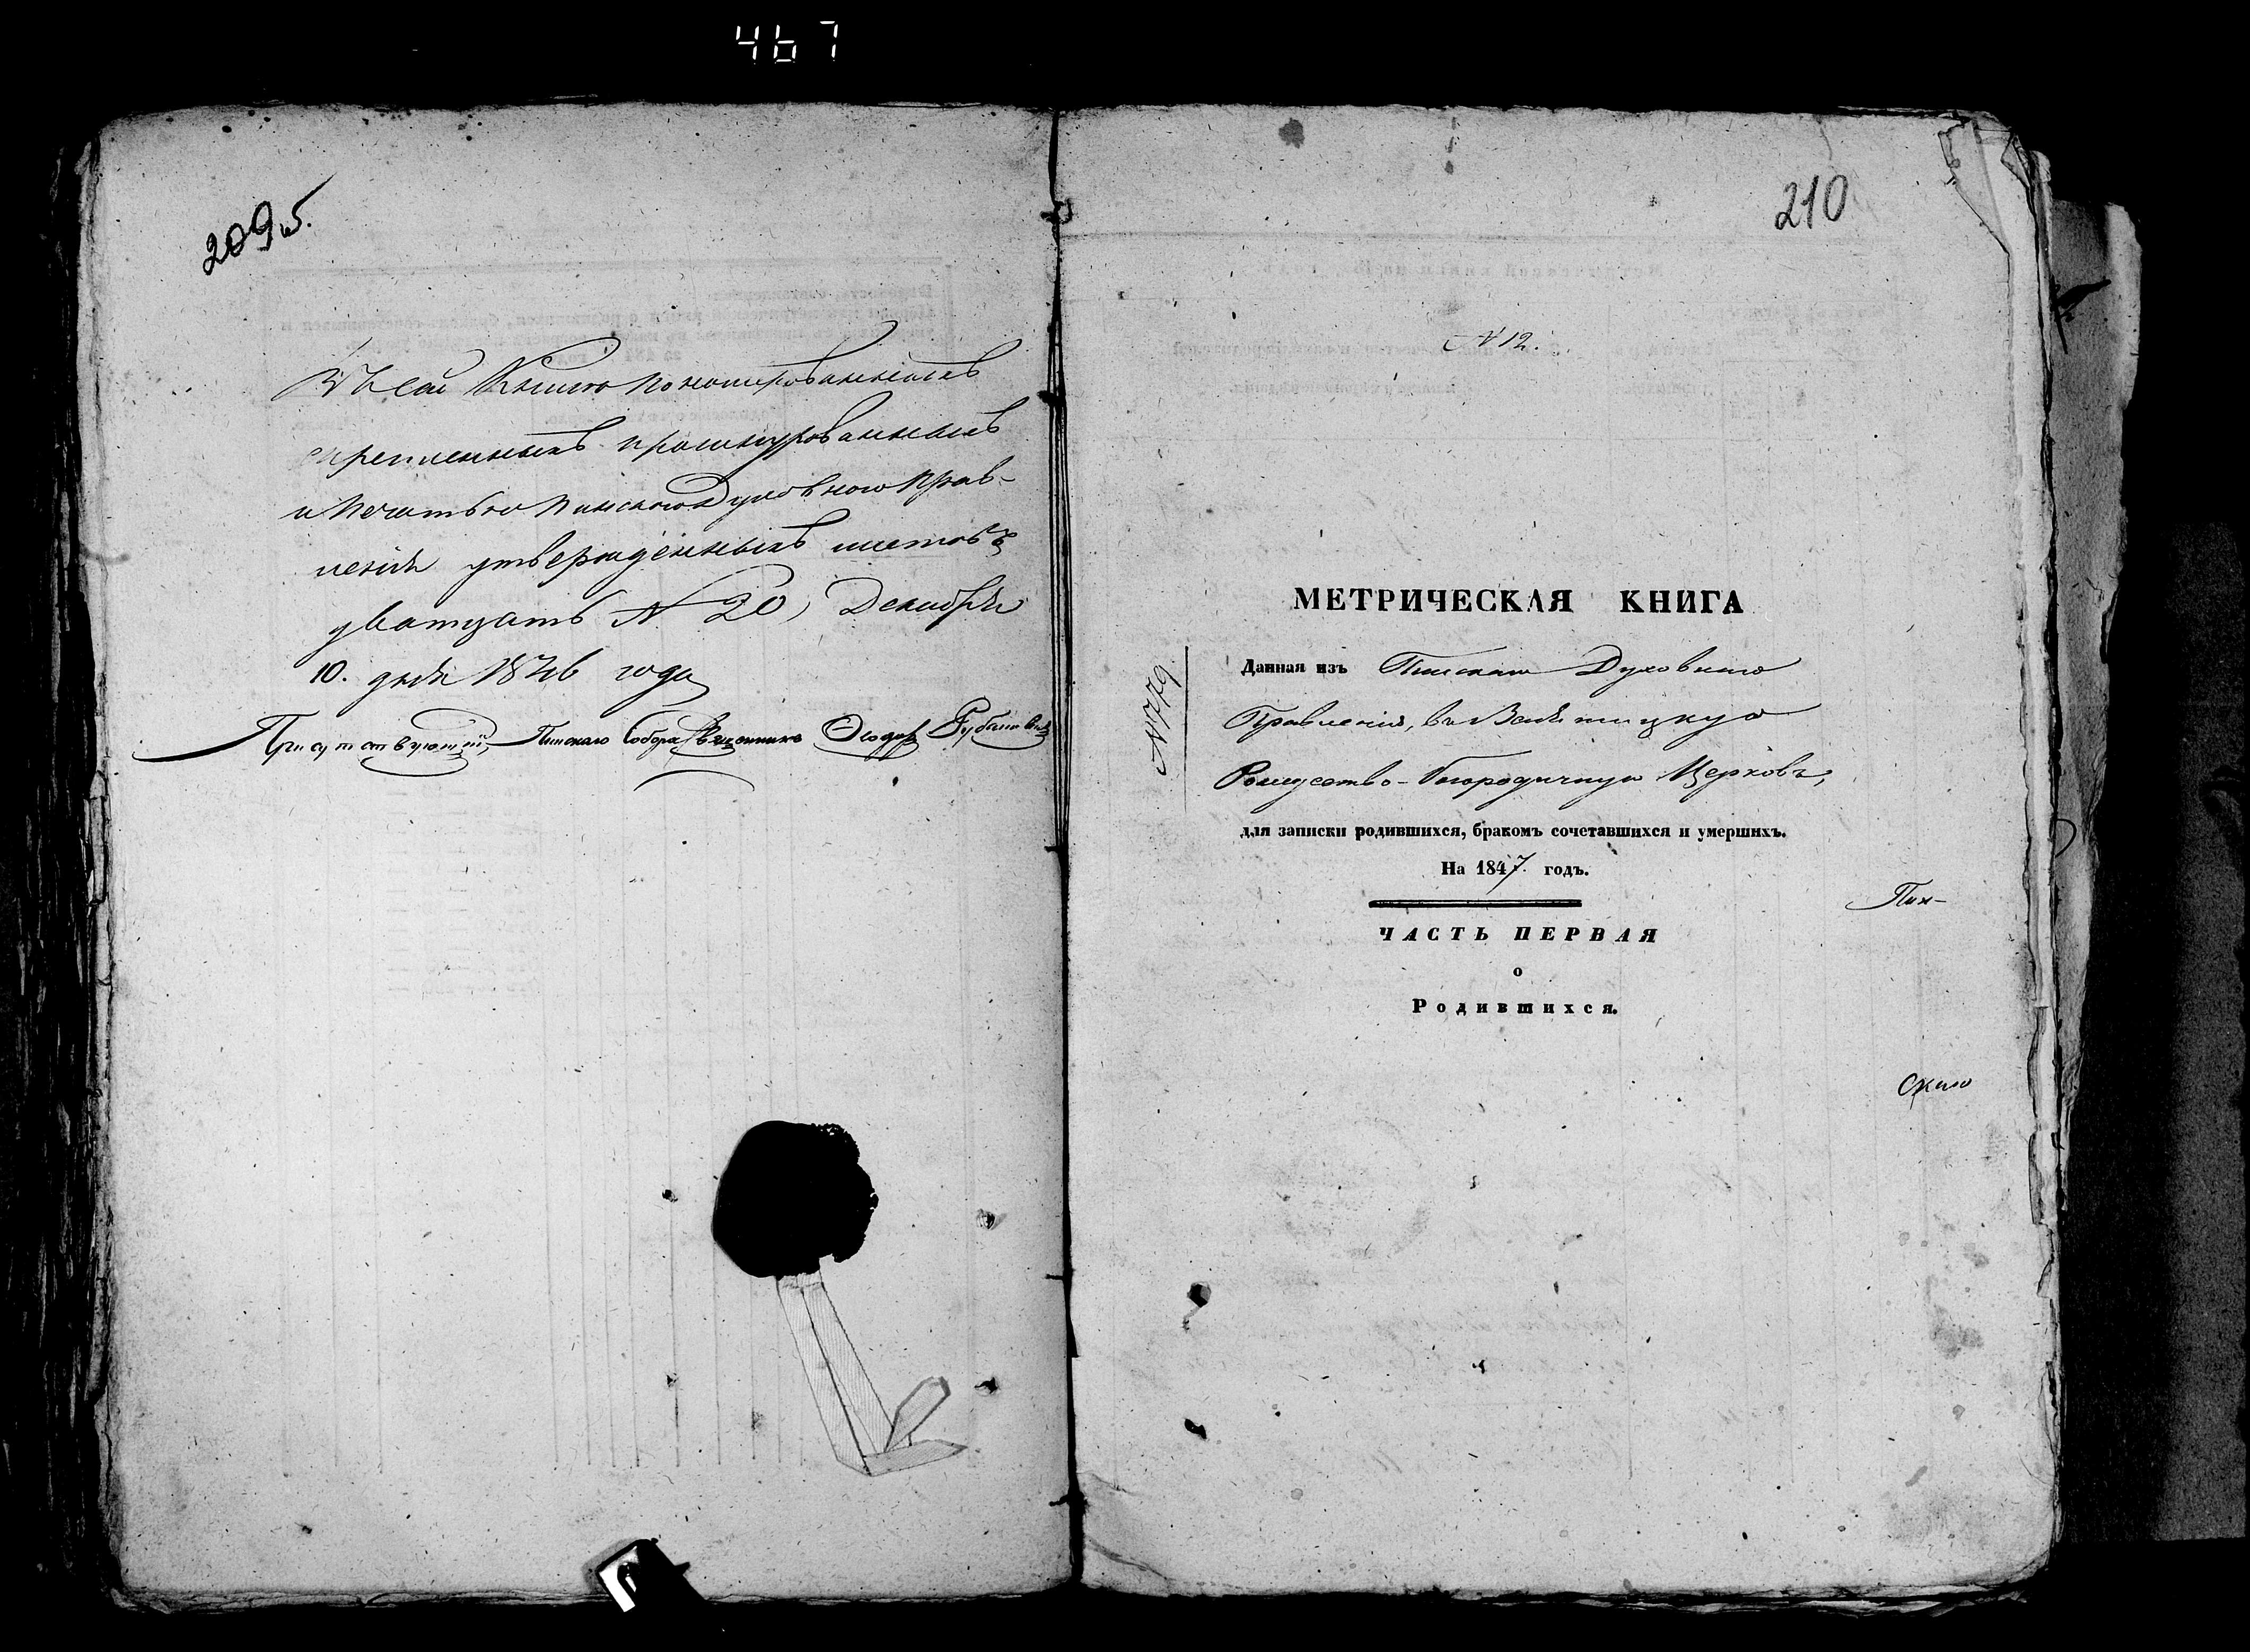 467
209 б.
Въ сей Книгѣ пономерованныхъ
скрепленныхъ прошнурованныхъ
и Печатью Пинскаго Духовного Прав-
ленія утвержденныхъ листовъ
дватцать N 20, Декабря
10. дня 1846 года
Присутствующій, Пинскаго Собора Священникъ Ѳеодоръ
210
N 12.
МЕТРИЧЕСКАЯ КНИГА
Данная изъ Пинскаго Духовнаго
Правленія, въ
Рождество-Богородичную Церковь,
для записки родившихся, бракомъ сочетавшихся и умершихъ.
На 1847 годъ.
N 779
Пин-
ЧАСТЬ ПЕРВАЯ
о
Родившихся.
скаго